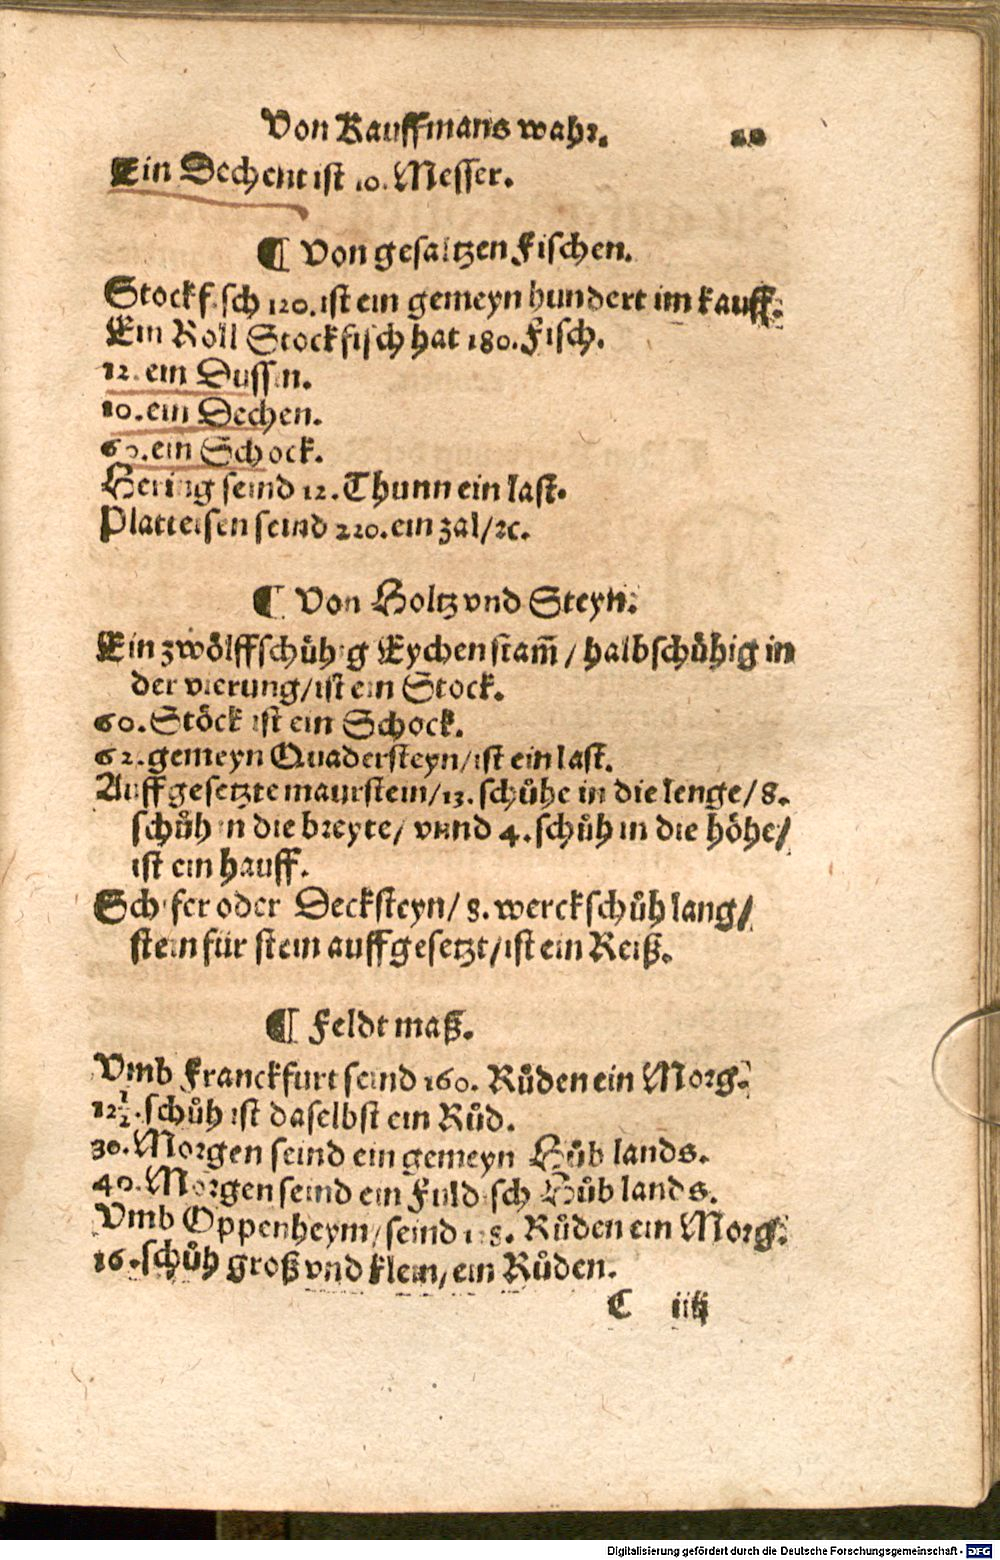 Von Kauffmans wahr.
Ein Dechent ist 10. Messer.
¶ Von gesaltzen Fischen.
Stockfisch 120. ist ein gemeyn hundert im kauff.
Ein Roll Stockfisch hat 180. Fisch.
12. ein Dussin.
10. ein Dechen.
60. ein Schock.
Hering seind 12. Thunn ein last.
Platteisen seind 220. ein zal/ ꝛc.
¶ Von Holtz vnd Steyn.
Ein zwölffschühig Eychen stam̄ / halbschühig in
der vierung/ ist ein Stock.
60. Stöck ist ein Schock.
62. gemeyn Quadersteyn/ ist ein last.
Auffgesetzte maurstein/ 13. schůhe in die lenge/ 8.
schůh in die breyte/ vnnd 4. schůh in die höhe/
ist ein hauff.
Schifer oder Decksteyn/ 8. werckschůh lang/
stein für stein auffgesetzt/ ist ein Reiß.
¶ Feldt maß.
Vmb Franckfurt seind 160. Růden ein Morg.
12 1/2. schůh ist daselbst ein Růd.
30. Morgen seind ein gemeyn Hůb lands.
40. Morgen seind ein Fuldisch Hůb lands.
Vmb Oppenheym/ seind Růden ein Morg.
16. schůh groß vnd klein/ ein Růden.
C iiij
Digitalisierung gefördert durch die Deutsche Forschungsgemeinschaft - DFG